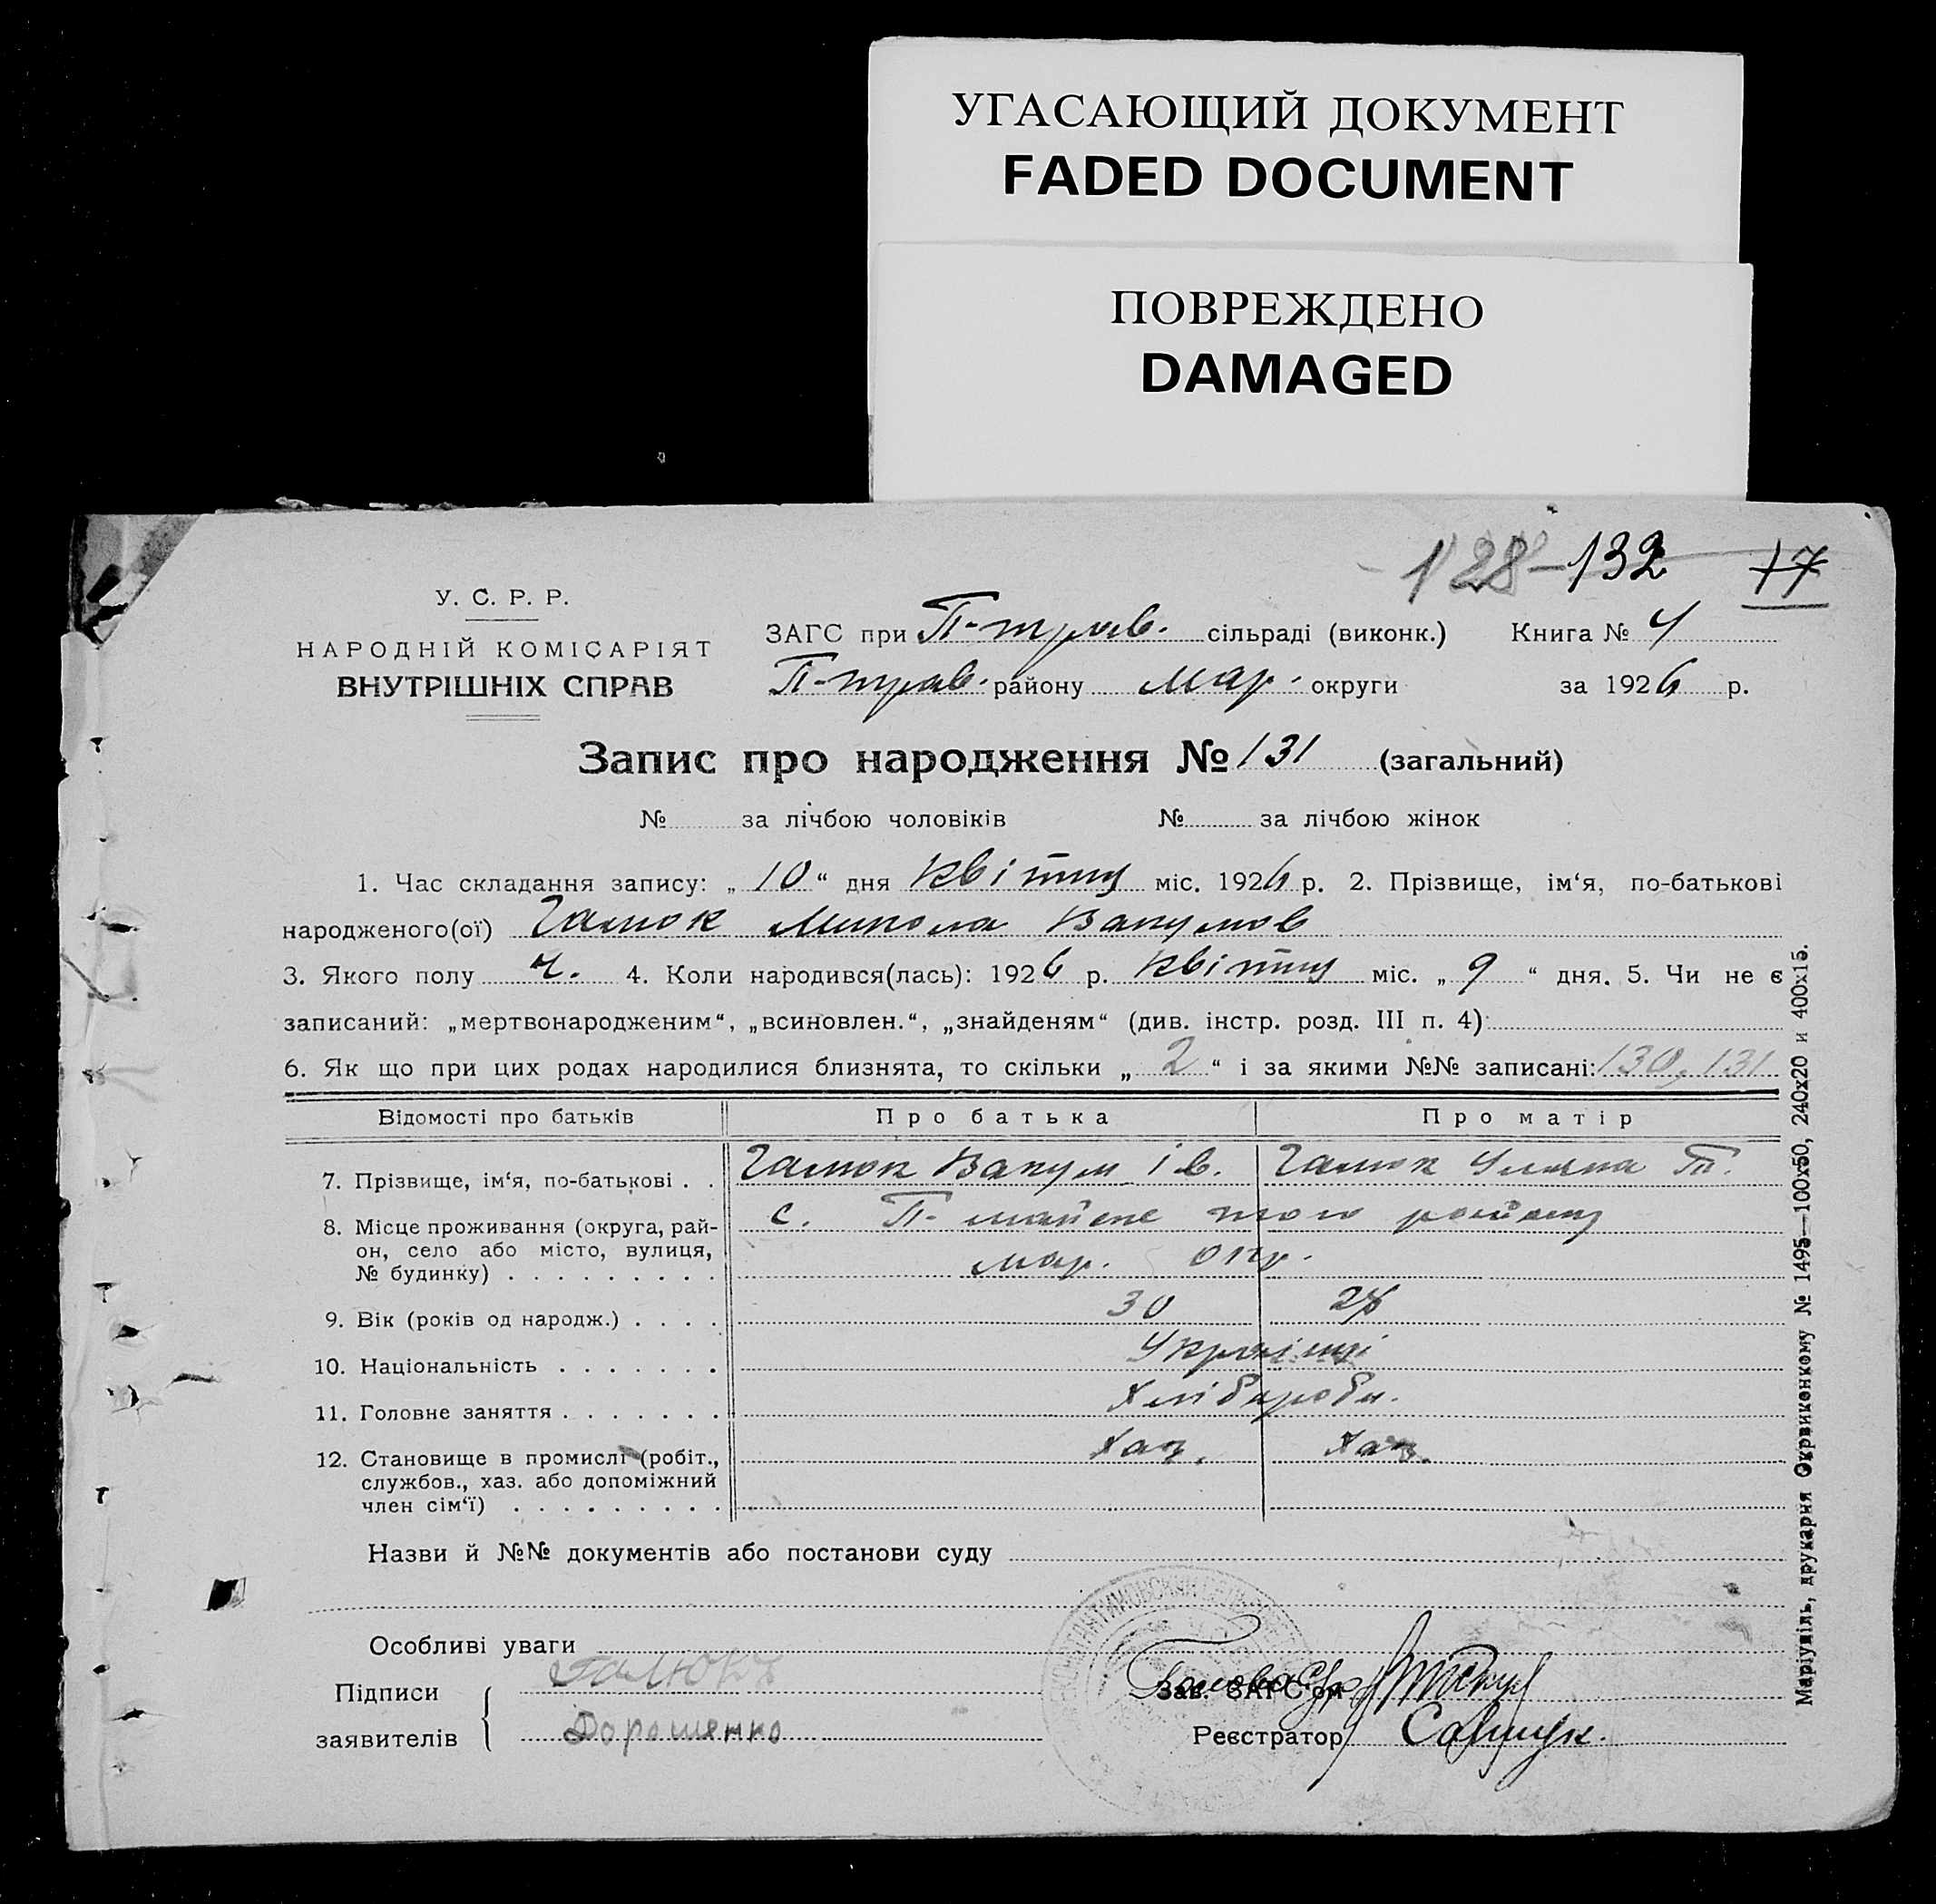 УГАСАЮЩИЙ ДОКУМЕНТ
FADED DOCUMENT
ПОВРЕЖДЕНО
DAMAGED
128–132 17
У. С. Р. Р.
НАРОДНІЙ КОМІСАРІЯТ
ВНУТРІШНІХ СПРАВ
ЗАГС при П-трав. сільраді (виконк.) Книга № 4
П-трав. району мар. округи за 1926 р.
Запис про народження № 131 (загальний)
№ за лічбою чоловіків № за лічбою жінок
1. Час складання запису: „10“ дня квітня міс. 1926 р. 2. Прізвище, ім‘я, по-батькові
народженого(ої) Галюк Микола Вакумов
3. Якого полу ч. 4. Коли народився(лась): 1926 р. квітня міс. „9“ дня. 5. Чи не є
записаний: „мертвонародженим“, „всиновлен.“, „знайденям“ (див. інстр. розд. III п. 4)
6. Як що при цих родах народилися близнята, то скільки „2“ і за якими №№ записані: 130, 131
Відомості про батьків Про батька Про матір
7. Прізвище, ім‘я, по-батькові . . Галюк Вакум Ів. Галюк Уляна П.
8. Місце проживання (округа, рай- с. П- того району
он, село або місто, вулиця, мар. окр.
№ будинку) . . . . . . . . .
9. Вік (років од народж.) . . . . 30 28
10. Національність . . . . . . . Українці
11. Головне заняття . . . . . . . Хлібороби.
12. Становище в промислі (робіт., Хаз. Хаз.
службов., хаз. або допоміжний
член сім‘ї) . . . . . . . . .
Назви й №№ документів або постанови суду
Особливі уваги
Підписи Галюк
заявителів Дорошенко
Зав. ЗАГС‘ом Голова С/р
Реєстратор Савчук.
Маріупіль, друкарня Окрвиконкому № 1495—100х50, 240х20 и 400х15.